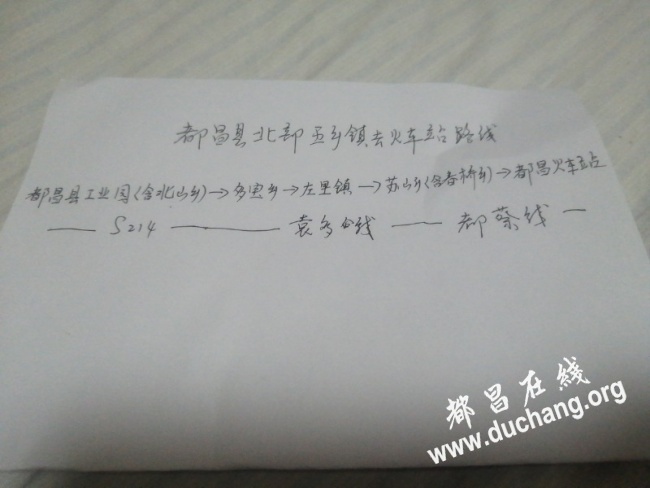 都昌县北部五乡镇去火车站路线
都昌县工业园(含北山乡)→多宝乡→左里镇→苏山乡(含春桥乡)→都昌火车站
—— S214 ———— 袁多线 —— 都蔡线 —
都昌在线
www.duchang.org